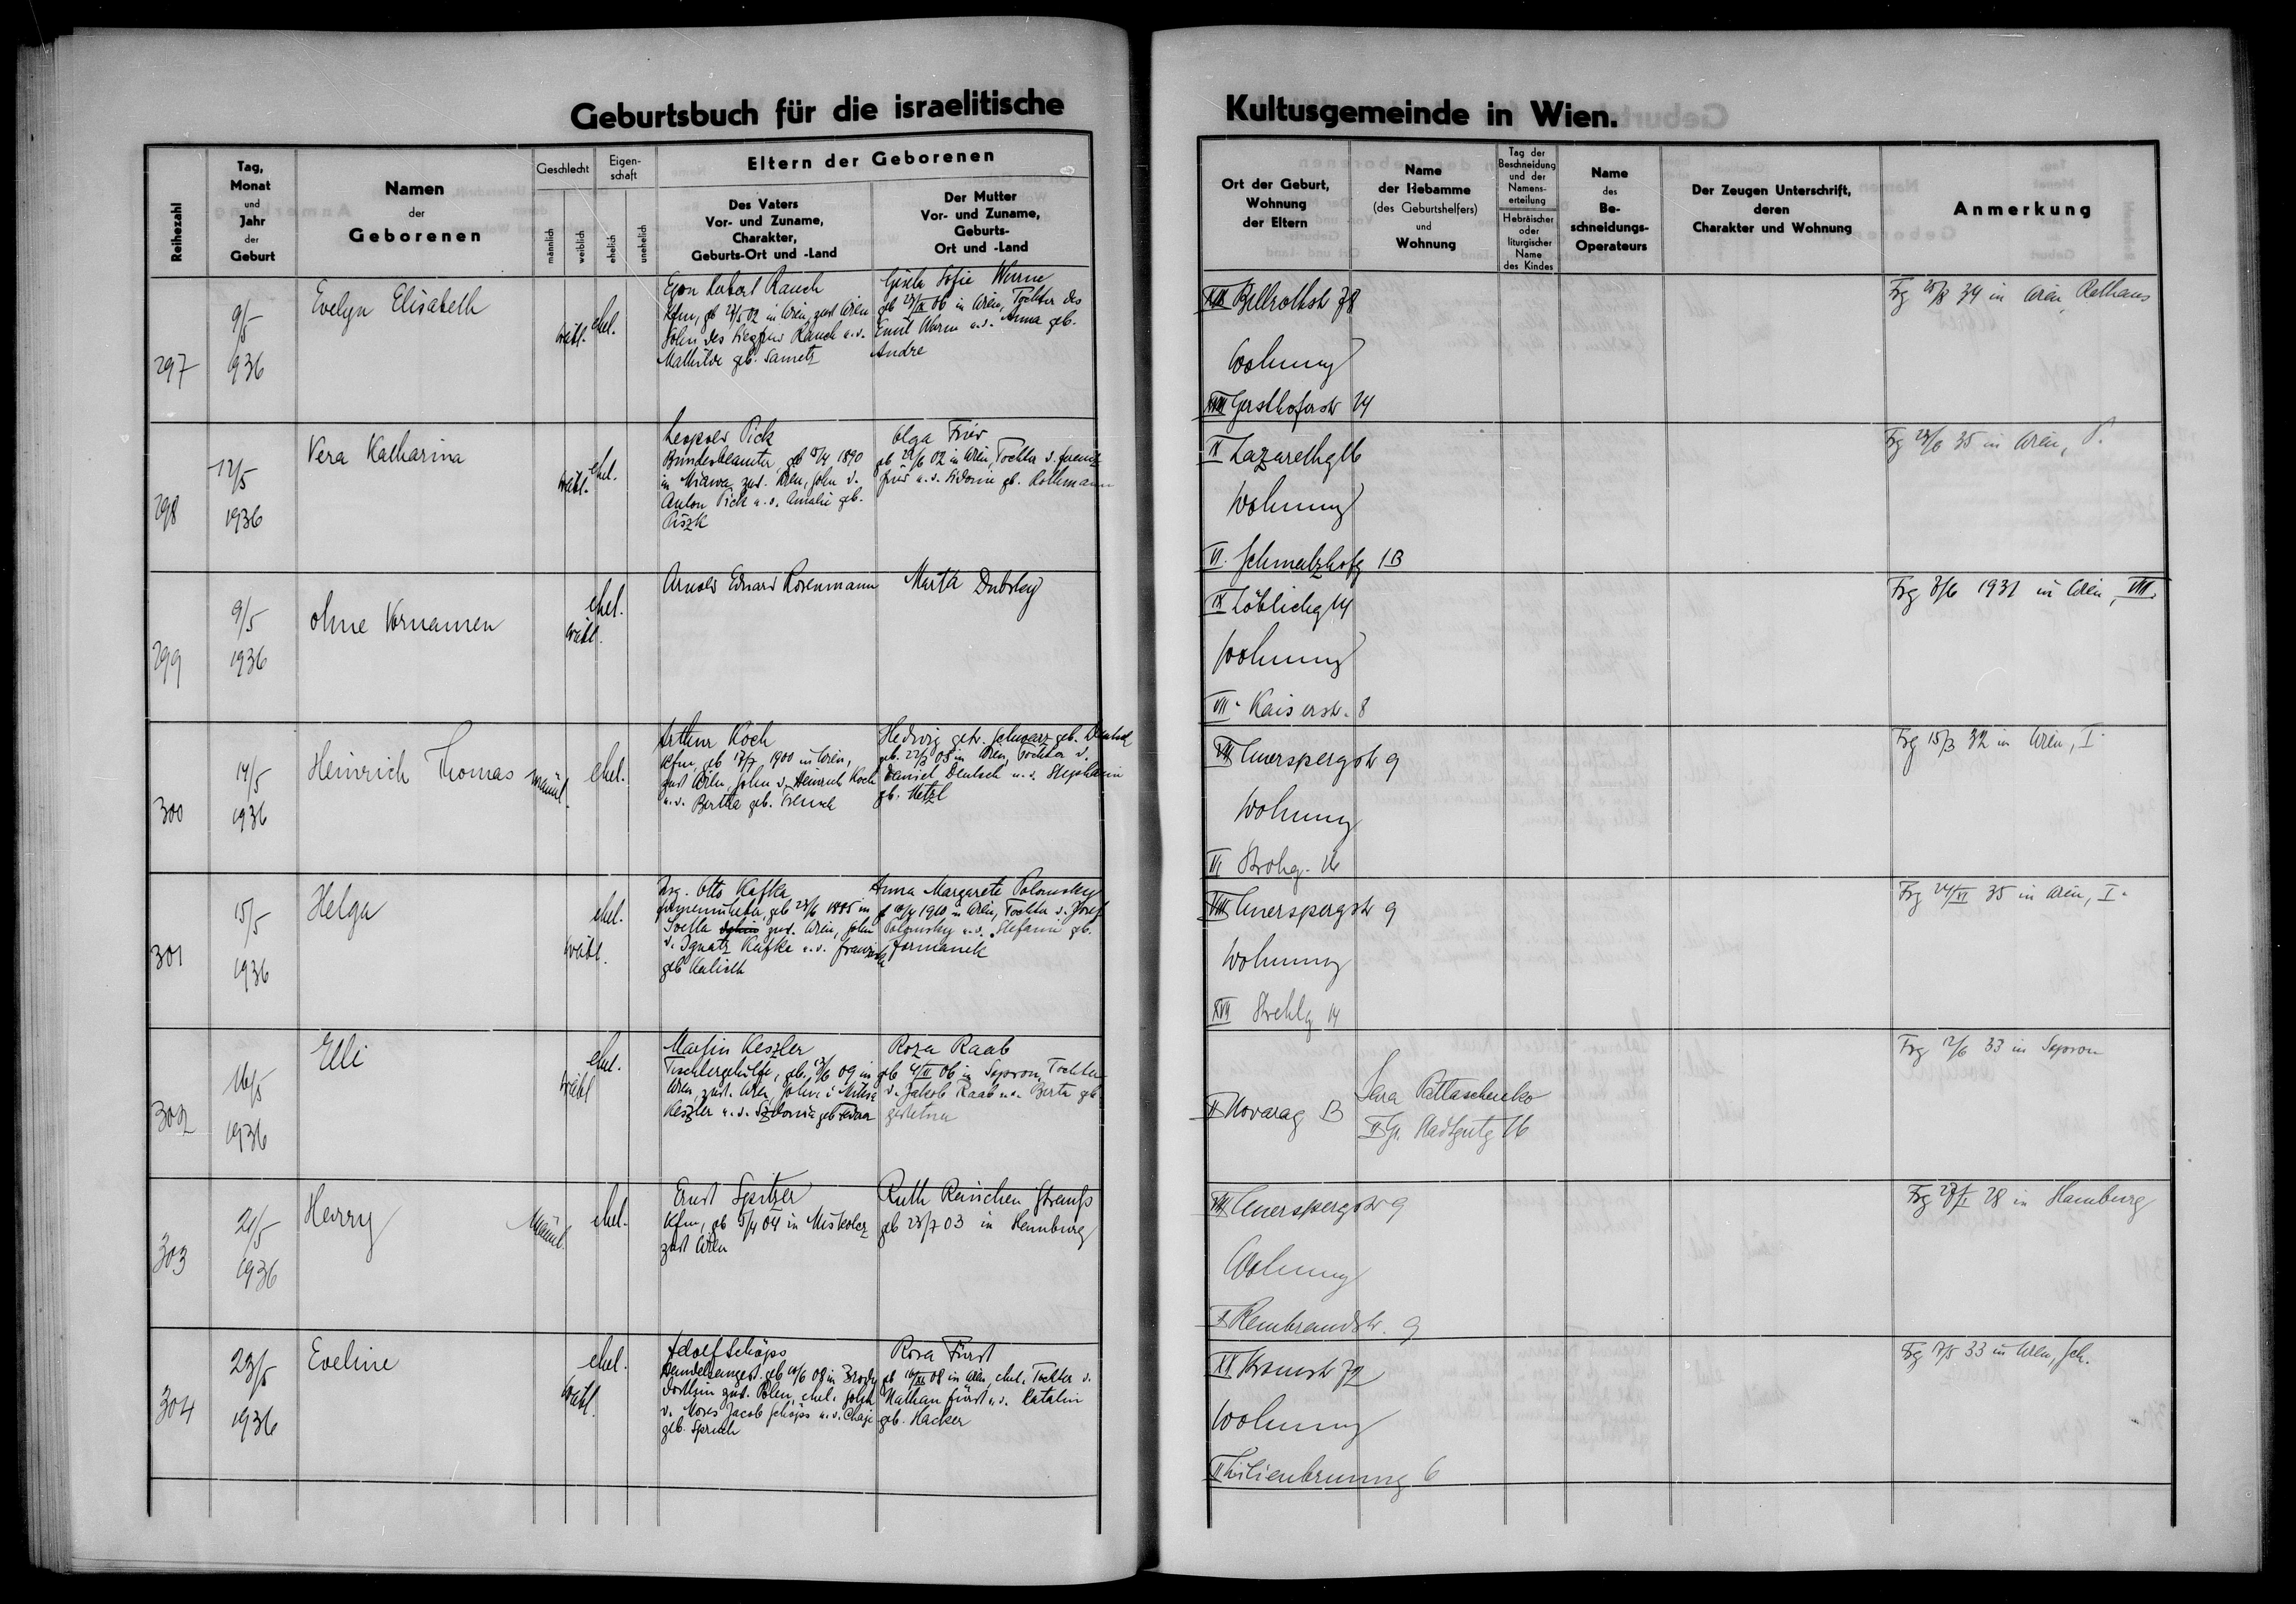 Geburtsbuch für die israelitische
Kultusgemeinde in Wien.
Reihezahl
Tag,
Monat
und
Jahr
der
Geburt
Namen
der
Geborenen
Geschlecht
männlich
weiblich
Eigen-
schaft
ehelich
unehelich
Eltern der Geborenen
Des Vaters
Vor- und Zuname,
Charakter,
Geburts-Ort und -Land
Der Mutter
Vor- und Zuname,
Geburts-
Ort und -Land
Ort der Geburt,
Wohnung
der Eltern
Name
der Hebamme
(des Geburtshelfers)
und
Wohnung
Tag der
Beschneidung
und der
Namens-
erteilung
Hebräischer
oder
liturgischer
Name
des Kindes
Name
des
Be-
schneidungs-
Operateurs
Der Zeugen Unterschrift,
deren
Charakter und Wohnung
Anmerkung
297
9/5
936
Evelyn Elisabeth
weibl.
ehel.
Egon Robert Rauch
Kfm, geb 27/5 02 in Wien, zust Wien
Sohn des Siegfried Rauch u.d.
Mathilde geb. Sametz
Gisela Sofie Wurm
geb 06 in Wien, Tochter des
Emil Wurm u.d. Anna geb.
Andre
XIX Billrothstr 78
Wohnung
XVIII Gersthoferstr 24
Trg 34 in Wien, Rathaus
298
12/5
1936
Vera Katharina
weibl.
ehel.
Leopold Pick
Bundesbeamter, geb 1890
in zust. Wien, Sohn d.
Anton Pick u.d. Amalie geb.
Olga
geb 02 in Wien, Tochter d.
u.d. Sidonie gb. Rothmann
IX Lazarethg 16
Wohnung
VI. Schmalzhofg 1B
Trg 35 in Wien,
299
9/5
1936
ohne Vornamen
ehel.
weibl.
Arnold Eduard Rosenmann
Marta Dubsky
IX Löblichg 14
Wohnung
VII. Kaiserstr. 8
Trg 8/6 1931 in Wien, VIII.
300
14/5
1936
Heinrich Thomas
männl.
ehel.
Arthur Koch
Kfm, geb 17/7 1900 in Wien,
zust Wien, Sohn d. Heinrich Koch
u.d. Bertha geb.
Hedwig gesch. Schwarz geb. Deutsch
geb. 22/3 05 in Wien, Tochter d.
Daniel Deutsch u.d. Stephanie
gb. Metzl
VIII Auerspergstr 9
Wohnung
III Strohg. 16
Trg 15/3 32 in Wien, I.
301
15/5
1936
Helga
ehel.
weibl.
Ing. Otto Kafka
geb 1885 in
zust. Wien, Sohn
d. Ignatz Kafka u.d. Franziska
geb Kalisch
Anna Margarete Polomsky
1910 in Wien, Tochter d. Josef
Polomsky u.d. Stefanie geb.
Formanek
VIII Auerspergstr 9
Wohnung
XVII 14
Trg 24/VI 35 in Wien, I.
302
16/5
1936
Elli
ehel.
weibl
Martin Keszler
Tischlergehilfe, geb. 09 in
Wien, zust. Wien, Sohn
Keszler u.d. Szidonia geb
Roza Raab
geb 4/II 06 in Sopron, Tochter
d. Jakob Raab u.d. Berta geb
II Novarag
Sara Pattaschenko
II Gr. Stadtgutg 16
Trg 12/6 33 in Sopron
303
21/5
1936
Harry
Männl.
ehel.
Ernst Spitzer
Kfm, geb 04 in Miskolcz
zust Wien
Ruth Renschen Strauß
geb 23/7 03 in Hamburg
VIII Auerspergstr 9
Wohnung
Rembrandstr. 9
Trg 28 in Hamburg
304
23/5
1936
Eveline
ehel.
weibl.
Adolf Schöps
Handelsangest. geb 08 in Brody
zust. Polen, ehel. Sohn
d. Moses Jacob Schöps u.d. Chaje
geb. Spruch
Rosa Fürst
geb 08 in Wien, ehel. Tochter d.
Nathan Fürst u.d. Katalin
geb. Hacker
72
Wohnung
II Lilienbrunng 6
Trg 7/5 33 in Wien, Sch.